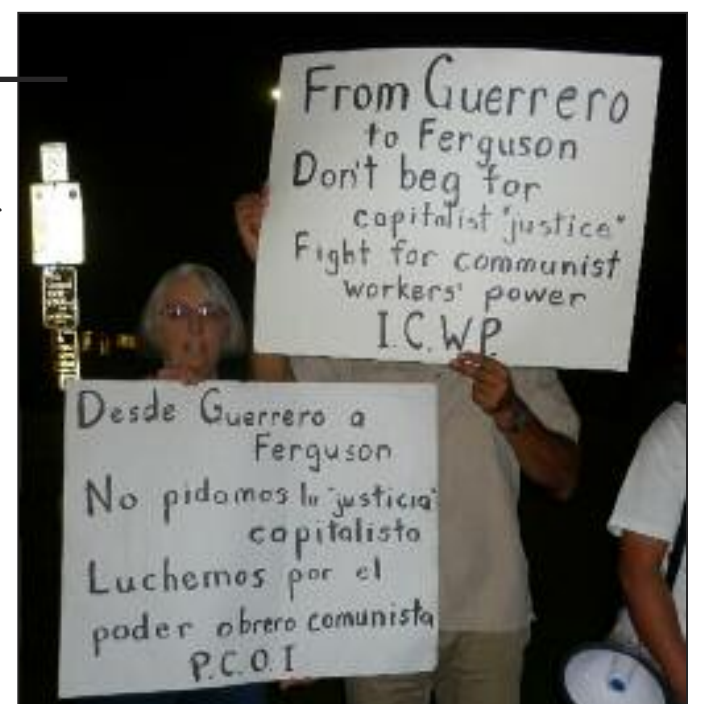 From Guerrero
to Ferguson
Don't beg for
capitalist "justice"
Fight for communist
workers' power
I.C.W.P.
Desde Guerrero a
Ferguson
No pidamos la "justicia"
capitalista
Luchemos por el
poder obrero comunista
P.C.O.I